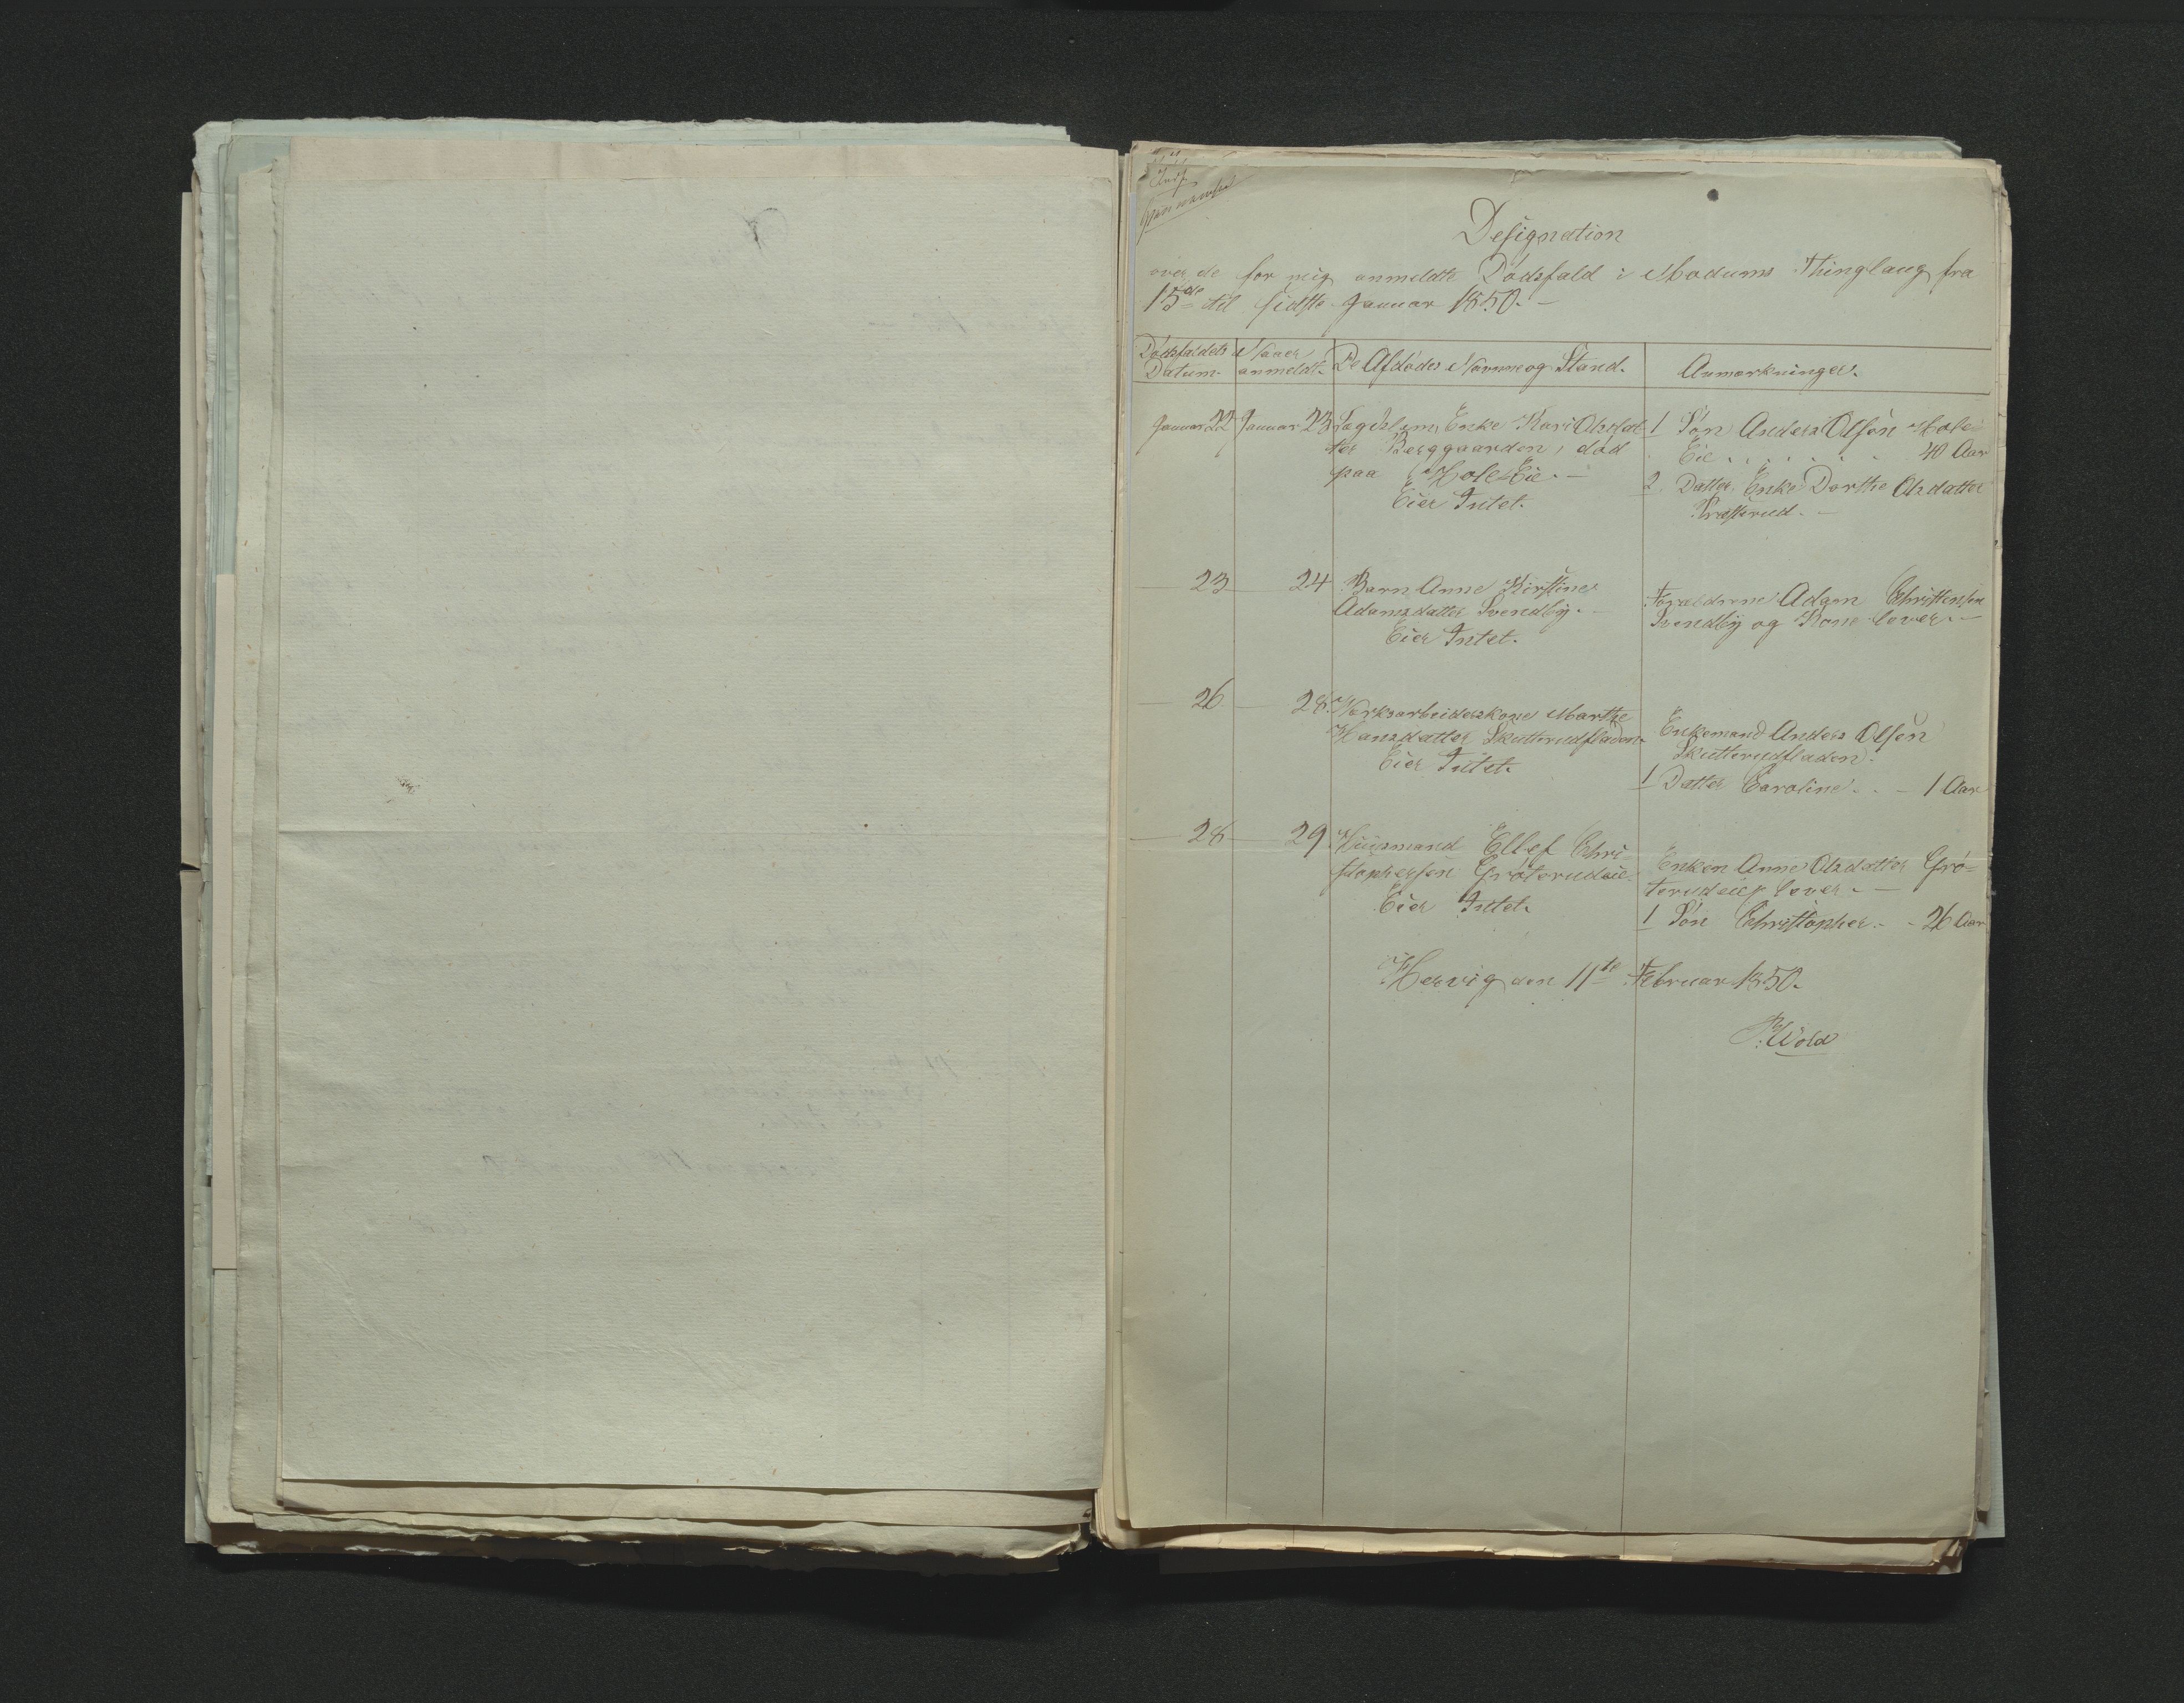 Designation
over de for mig anmeldte Dödsfald i Modums Thinglaug fra
15de til sidste Januar 1850.-
Dödsfaldets Datum.
Naaer anmeldt.
De Afdödes Navne og Stand.
Anmærkninger.
Januar 22 Januar 23 Lægdslem, Enke Kari Olsdat-
ter Berggaarden, död
paa Hole Eie.-
Eier Intet.
1 Sön Anders Olsön Hole
Eie . . . . . . 40 Aar
2 Datter Enke Dorthe Olsdatter
Præsterud.-
- 23 - 24 Barn Anne Kirstine
Adamsdatter Svendby.-
Eier Intet.
Forældrene Adam Christensen
Svendby og Kone lever.-
- 26 - 28 Værksarbeiderskone Marthe
Hansdatter Skutterudfladen.
Eier Intet.
Enkemand Anders Olsen
Skutterudfladen.
1 Datter Caroline . . - 1 Aar
- 28 - 29 Huusmand Ellef Chri-
stophersen Gröterudeie.
Eier Intet.
Enken Anne Olsdatter Grö-
terudeie lever.-
1 Sön Christopher. - 26 Aar
Hervig den 11te Februar 1850.
P. Wold